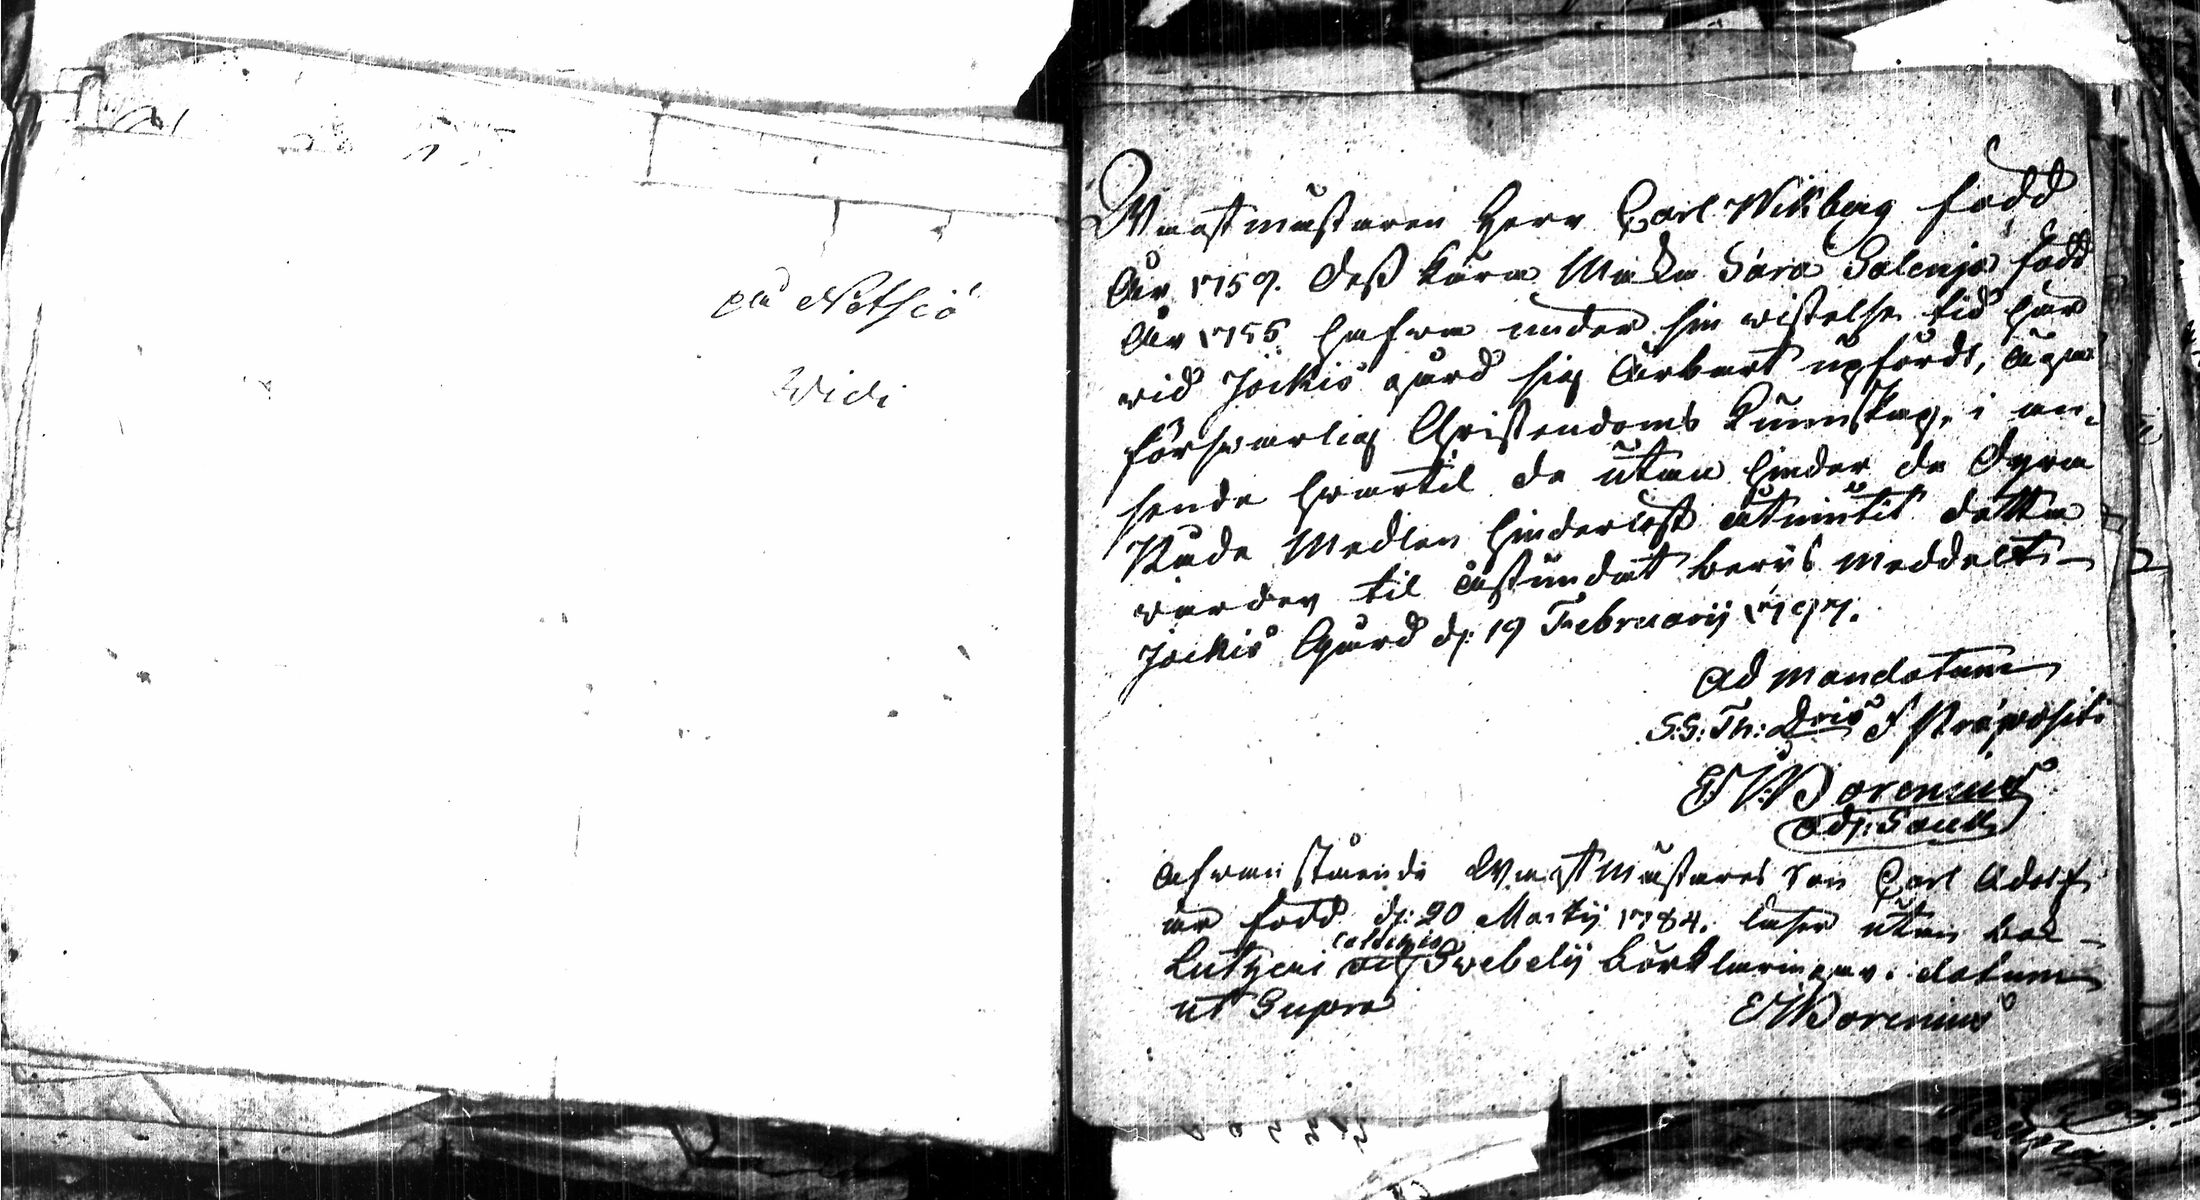 på Nötsiö
Widi
Wagtmästaren Herr Carl Wikberg född
År 1759. Dess kära Maka Sara Salenja född
År 1755 hafwa under sin wistelse tid här
wid Jockis gård sig ärbart upfördt, äga
förswarlig Christendoms kunskap, i an-
seende hwartil de utan hinder de dyra
Nåde Medlen hinderlöst åtnutit detta
warder til åstundat bewis meddelt
Jockis Gård d: 19 Februarij 1797.
Ad mandatum
S:S: Th: Dris & Præpositi
E W Borenius
Adj: Sacell
Ofwanstående Wagtmästares Son Carl Adolf
är född d: 20 Martij 1784. läser utan bok
Lutheri catechis och Swebelij förklaringar. datum
ut Supra
E W Borenius